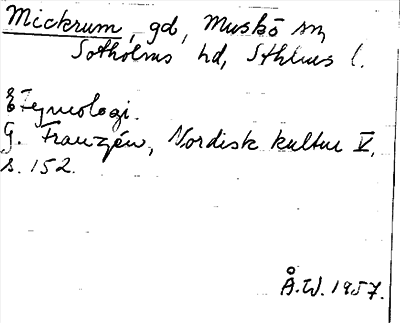 Mickrum, gd, Muskö sn,
Sotholms hd, Sthlms l.
Etymologi.
G. Franzén, Nordisk kultur V,
s. 152.
Å.W. 1957.